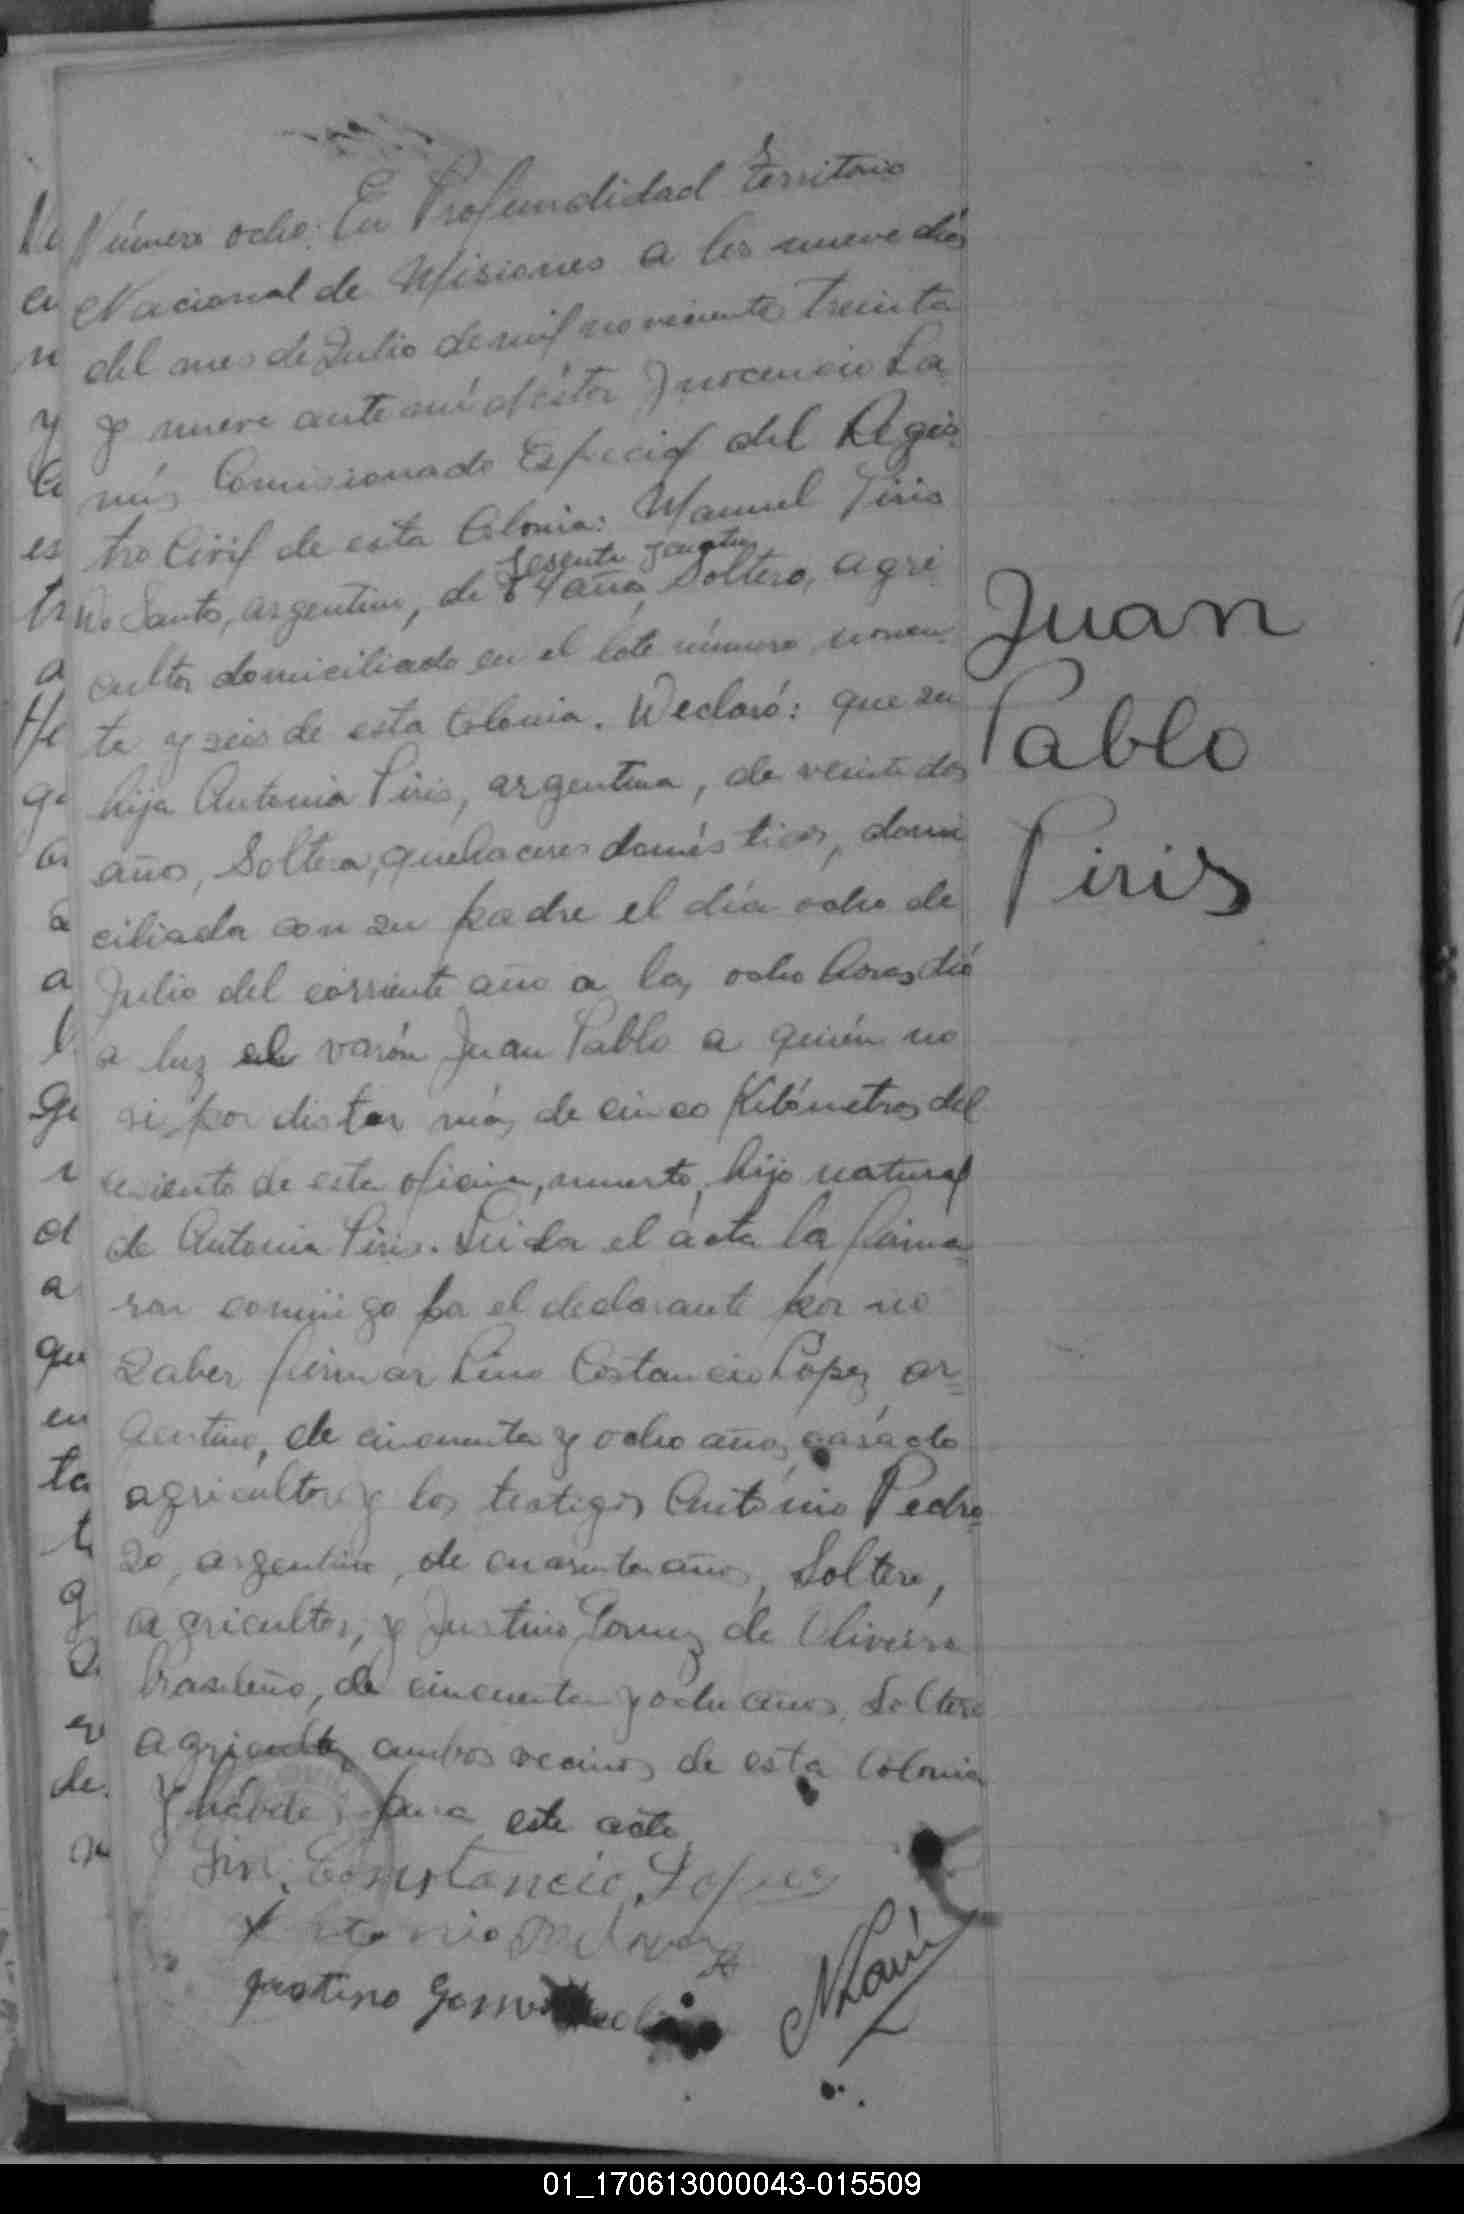 Número ocho: En Profundidad territorio
Nacional de Misiones a los nueve días
del mes de Julio de mil novecientos treinta
y nueve ante mí Néstor Inocencio La
nús Comisionado Especial del Regis
tro Civil de esta Colonia: Manuel Piris
sesenta y cuatro
Do Santo, argentino, de 64 años, Soltero, agri
cultor domiciliado en el lote número noven
ta y seis de esta Colonia. Declaró: que su
hija Antonia Piris, argentina, de veinte dos
años, Soltera, quehaceres domésticos, domi
ciliada con su padre el día ocho de
Julio del corriente año a las ocho horas dió
a luz el varón Juan Pablo a quién no
ví por distar más de cinco Kilómetros del
asiento de esta oficina, muerto, hijo natural
de Antonia Piris. Leída el ácta la firma=
ron conmigo por el declarante por no
Saber firmar Lino Costancio Lopez ar=
gentino, de cincuenta y ocho años, casado
agricultor y los testigos António Pedro=
zo, argentino, de cuarenta años, Soltero,
agricultor, y Justino Gomez de Oliveira
brasileño, de cincuenta y ocho años, Soltero
agricultor, ambos vecinos de esta Colonia
y hábiles para este acto
Constancio Lopez
Justino Gom
NLanús
Juan
Pablo
Piris
01_170613000043-015509